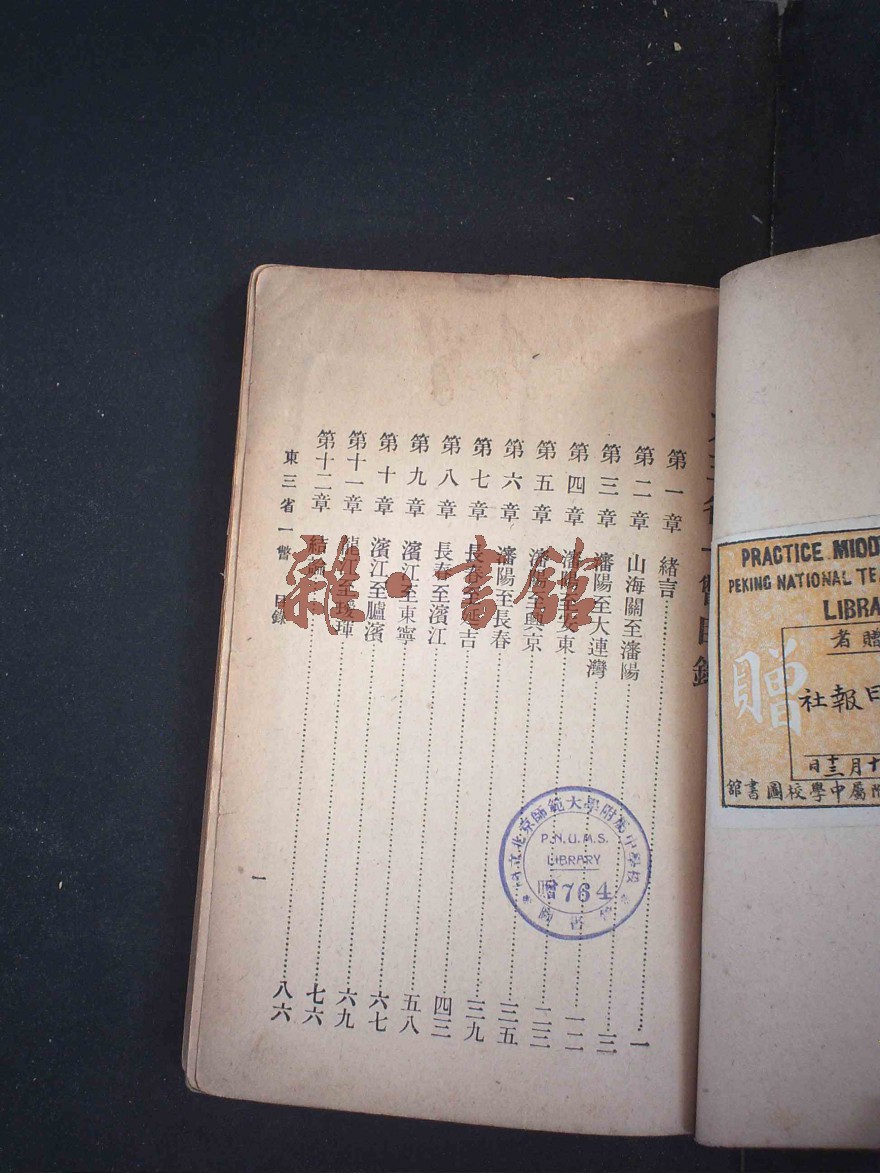 三省一瞥目錄
第一章 緒言……一
第二章 山海關至瀋陽……三
第三章 瀋陽至大連灣……一二
第四章 瀋陽至安東……二三
第五章 瀋陽至興京……三五
第六章 瀋陽至長春……三九
第七章 長春至延吉……四三
第八章 長春至濱江……五八
第九章 濱江至東寧……六七
第十章 濱江至臚濱……六九
第十一章 龍江至璦琿……七六
第十二章 結論……八六
東三省一瞥 目錄
一
國立北京師範大學附屬中學校
P.N.U.M.S.
LIBRARY
贈764
圖書館
PRACTICE MIDD
PEKING NATIONAL TEA
LIBRA
贈者
贈
日報社
十月十三日
附屬中學校圖書館
雜·書館